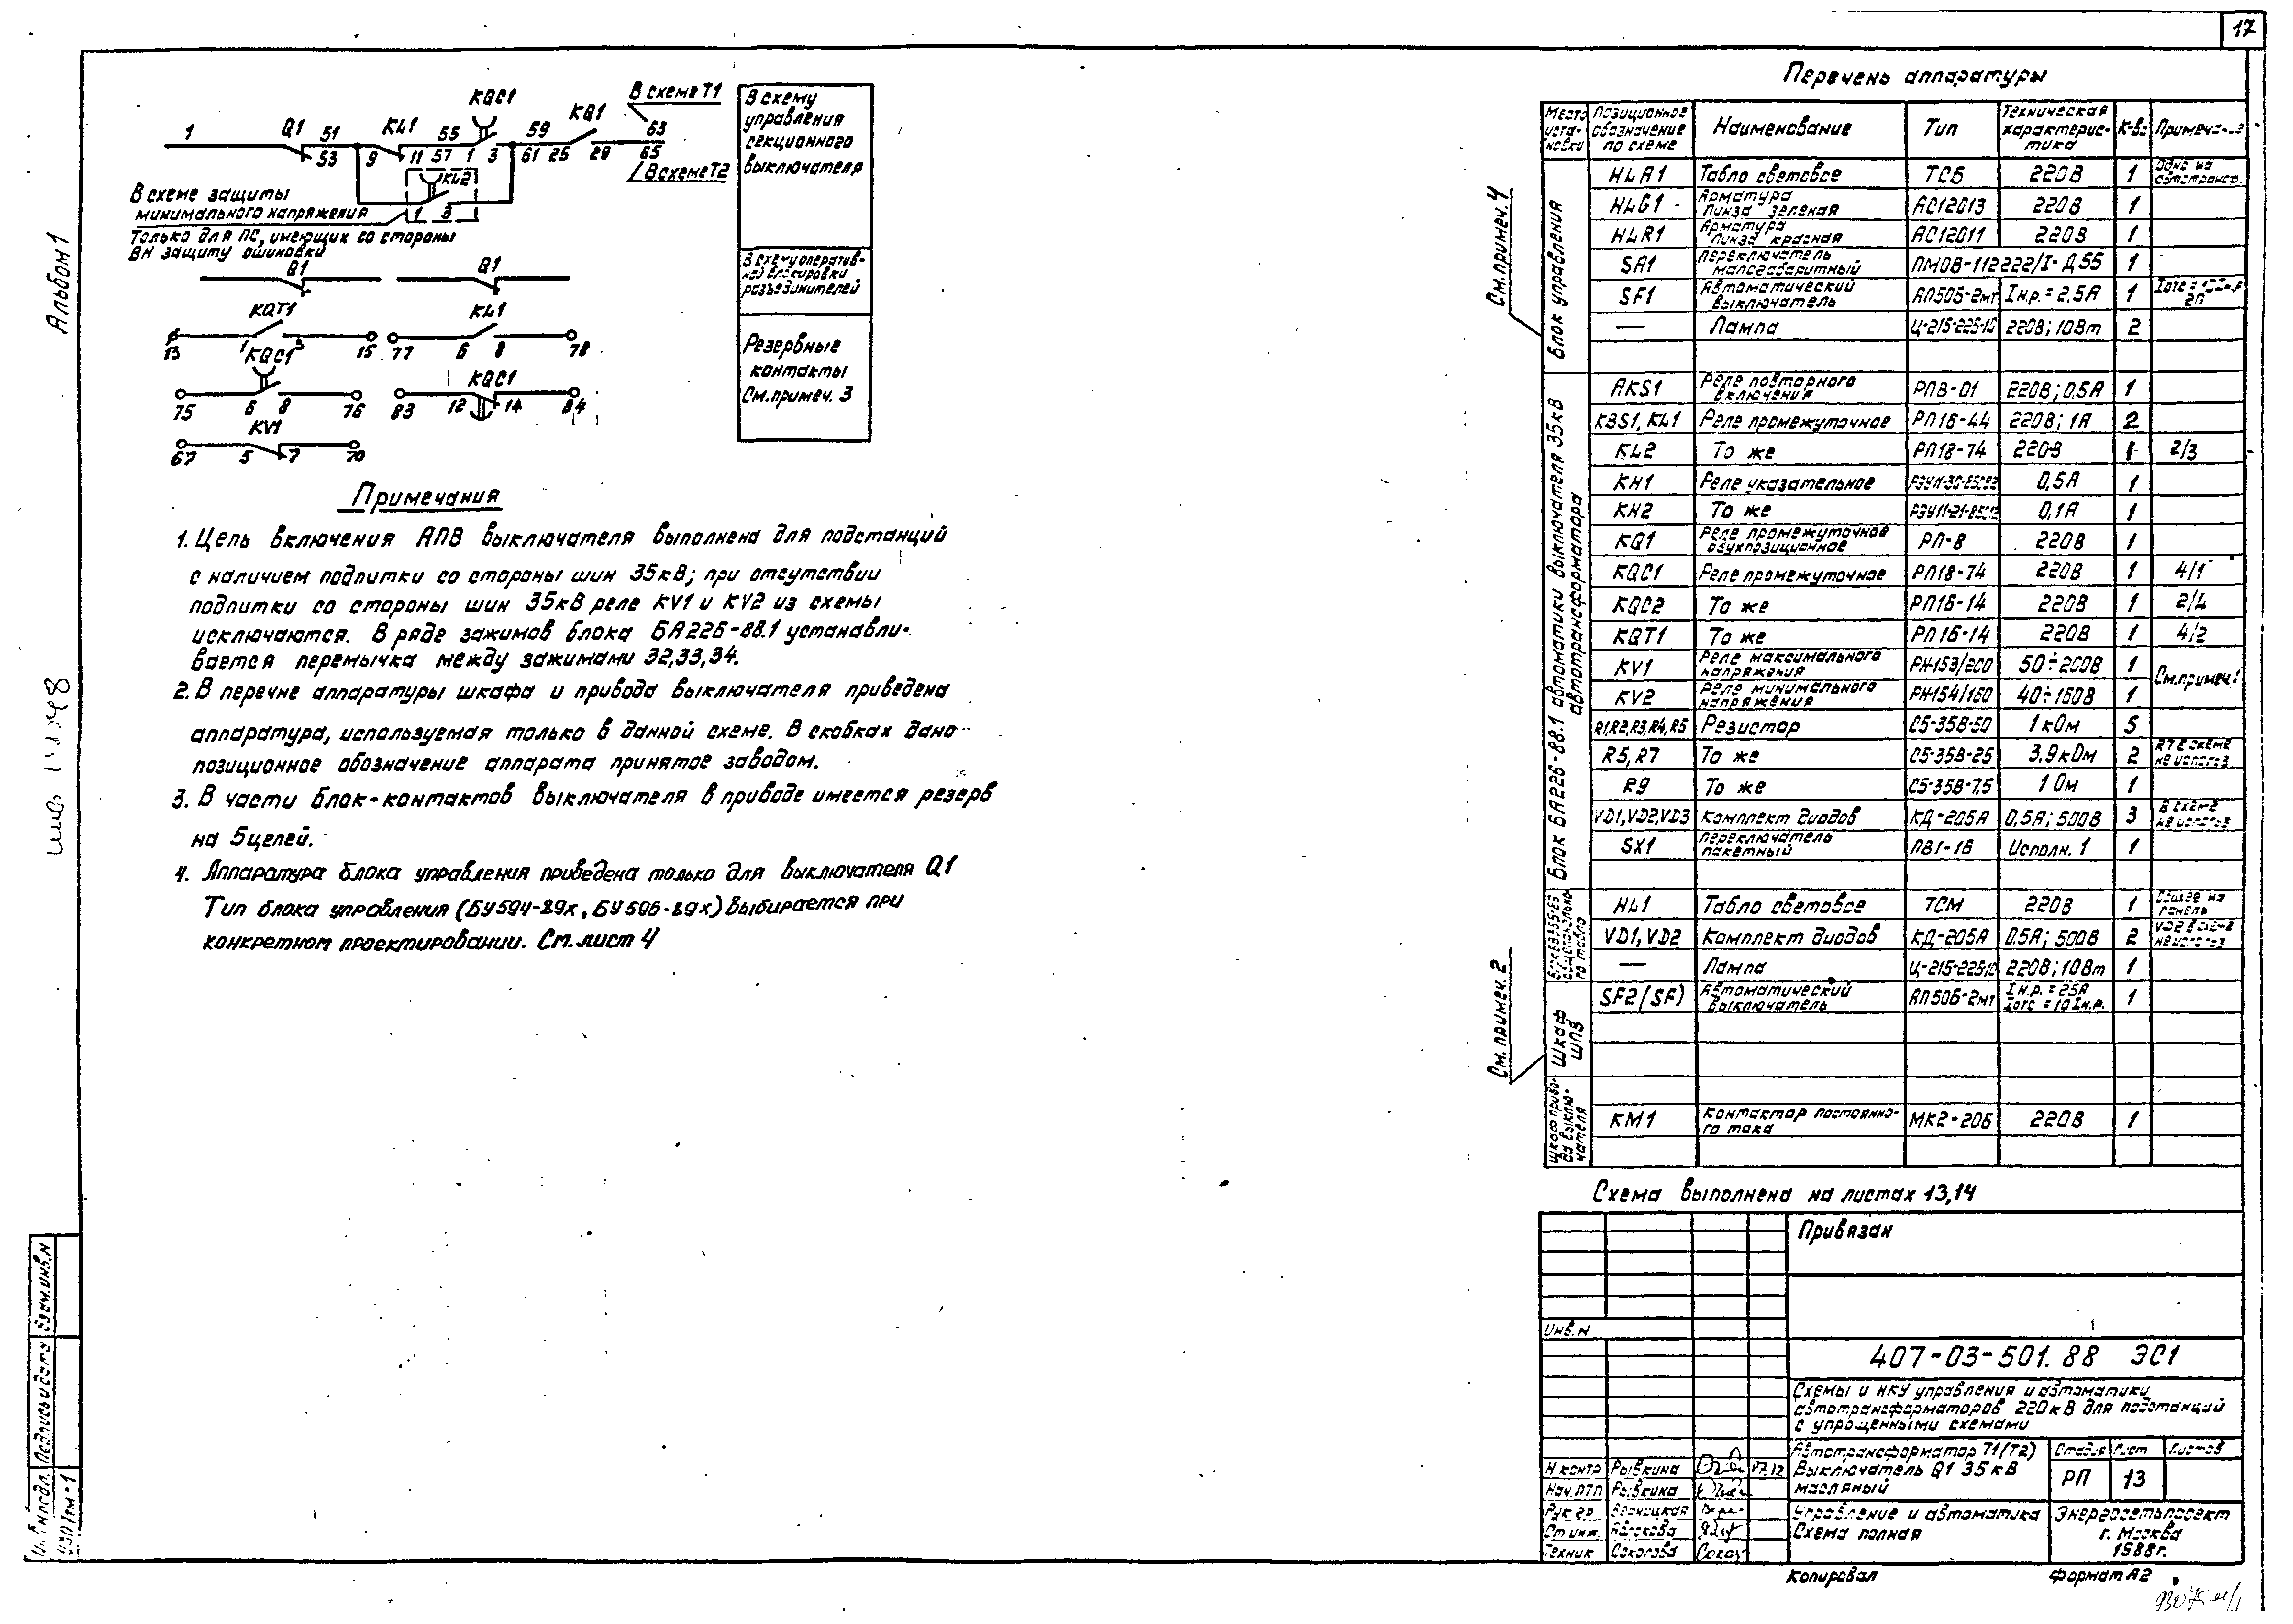 17
Альбом 1
В схеме Т1
KQC1
KQ1
Q1
KL1
1
51
53
9
11
55
57
1
3
59
61
25
28
63
65
В схеме Т2
KL2
1
3
В схеме защиты
минимального напряжения
Только для ПС, имеющих со стороны
ВН защиту ошиновки
В схему
управления
секционного
выключателя
Q1
Q1
В схему оператив-
ной блокировки
разъединителей
KQT1
13
1
3
15
KL1
77
6
8
78
KQC1
75
6
8
76
KQC1
83
12
14
84
KV1
67
5
7
70
Резервные
контакты
См. примеч. 3
Примечания
1. Цепь включения АПВ выключателя выполнена для подстанций
с наличием подпитки со стороны шин 35кВ; при отсутствии
подпитки со стороны шин 35кВ реле KV1 и KV2 из схемы
исключаются. В ряде зажимов блока БА226-88.1 устанавли-
вается перемычка между зажимами 32,33,34.
2. В перечне аппаратуры шкафа и привода выключателя приведена
аппаратура, используемая только в данной схеме. В скобках дано
позиционное обозначение аппарата принятое заводом.
3. В части блок-контактов выключателя в приводе имеется резерв
на 5 цепей.
4. Аппаратура блока управления приведена только для выключателя Q1
Тип блока управления (БУ594-89х, БУ596-89х) выбирается при
конкретном проектировании. См. лист 4
Перечень аппаратуры
Место уста-новки Позиционное обозначение по схеме Наименование Тип Техническая характерис-тика К-во Примечание
См. примеч. 4
Блок управления
HLA1 Табло световое ТСБ 220В 1 Одно на автотрансф.
HLG1 Арматура Линза зеленая АС12013 220В 1
HLR1 Арматура Линза красная АС12011 220В 1
SA1 Переключатель малогабаритный ПМОВ-112222/I-Д55 1
SF1 Автоматический выключатель АП50Б-2МТ Iн.р.=2,5А 1
— Лампа Ц-215-225-10 220В; 10Вт 2
Блок БА226-88.1 автоматики выключателя 35кВ автотрансформатора
AKS1 Реле повторного включения РПВ-01 220В; 0,5А 1
KBS1, KL1 Реле промежуточное РП16-44 220В; 1А 2
KL2 То же РП18-74 220В 1 2/3
KH1 Реле указательное 0,5А 1
KH2 То же 0,1А 1
KQ1 Реле промежуточное двухпозиционное РП-8 220В 1
KQC1 Реле промежуточное РП18-74 220В 1 4/1
KQC2 То же РП16-14 220В 1 2/4
KQT1 То же РП16-14 220В 1 4/2
KV1 Реле максимального напряжения РН153/200 50÷200В 1 См. примеч. 1
KV2 Реле минимального напряжения РН154/160 40÷160В 1
R1,R2,R3,R4,R5 Резистор С5-35В-50 1кОм 5
R5, R7 То же С5-35В-25 3,9кОм 2 R7 в схеме не использ.
R9 То же С5-35В-7,5 1 Ом 1
VD1,VD2,VD3 Комплект диодов КД-205А 0,5А; 500В 3 В схеме не использ.
SX1 Переключатель пакетный ПВ1-16 Исполн. 1 1
HL1 Табло световое ТСМ 220В 1 Общее на панель
VD1, VD2 Комплект диодов КД-205А 0,5А; 500В 2 VD2 в схеме не использ.
— Лампа Ц-215-225-10 220В; 10Вт 1
См. примеч. 2
Шкаф ШПВ
SF2 (SF) Автоматический выключатель АП50Б-2МТ Iн.р.=25А Iотс=10Iн.р. 1
Шкаф приво-да выклю-чателя
KM1 Контактор постоянно-го тока МК2-20Б 220В 1
Схема выполнена на листах 13,14
Привязан
Инв. N
407-03-501.88 ЭС1
Схемы и НКУ управления и автоматики
автотрансформаторов 220кВ для подстанций
с упрощенными схемами
Автотрансформатор Т1(Т2)
Выключатель Q1 35кВ
масляный
Стадия Лист Листов
РП 13
Управление и автоматика
Схема полная
Энергосетьпроект
г. Москва
1988г.
Н контр Рывкина
Нач. ПТП Рывкина
Рук гр
Ст инж.
Техник Соколова
Копировал
Формат А2
Подпись и дата
Взам. инв. N